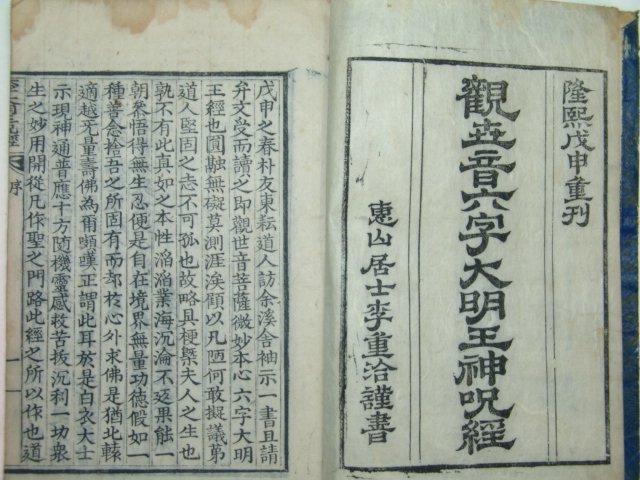 隆熙戊申重刊
觀世音六字大明王神呪經
惠山居士李重洽謹書
戊申之春朴友東耘道人訪余溪舍袖示一書且請
弁文受而讀之即觀世音菩薩微妙本心六字大明
王經也圓融無礙莫測涯涘顧以凡陋何敢擬議第
道人堅固之志不可孤也故略具梗槩夫人之生也
孰不有此真如之本性滔滔業海沉淪不返果能一
朝叅悟得無生忍便是自在境界無量功德假如一
種善念捨吾之所固有而却於心外求佛是猶北轅
適越旡量壽佛為爾嚬嘆正謂此耳於是白衣大士
示現神通普應十方隨機靈感救苦拔沉利一切衆
生之妙用開從凡作聖之門路此經之所以作也道
序
一